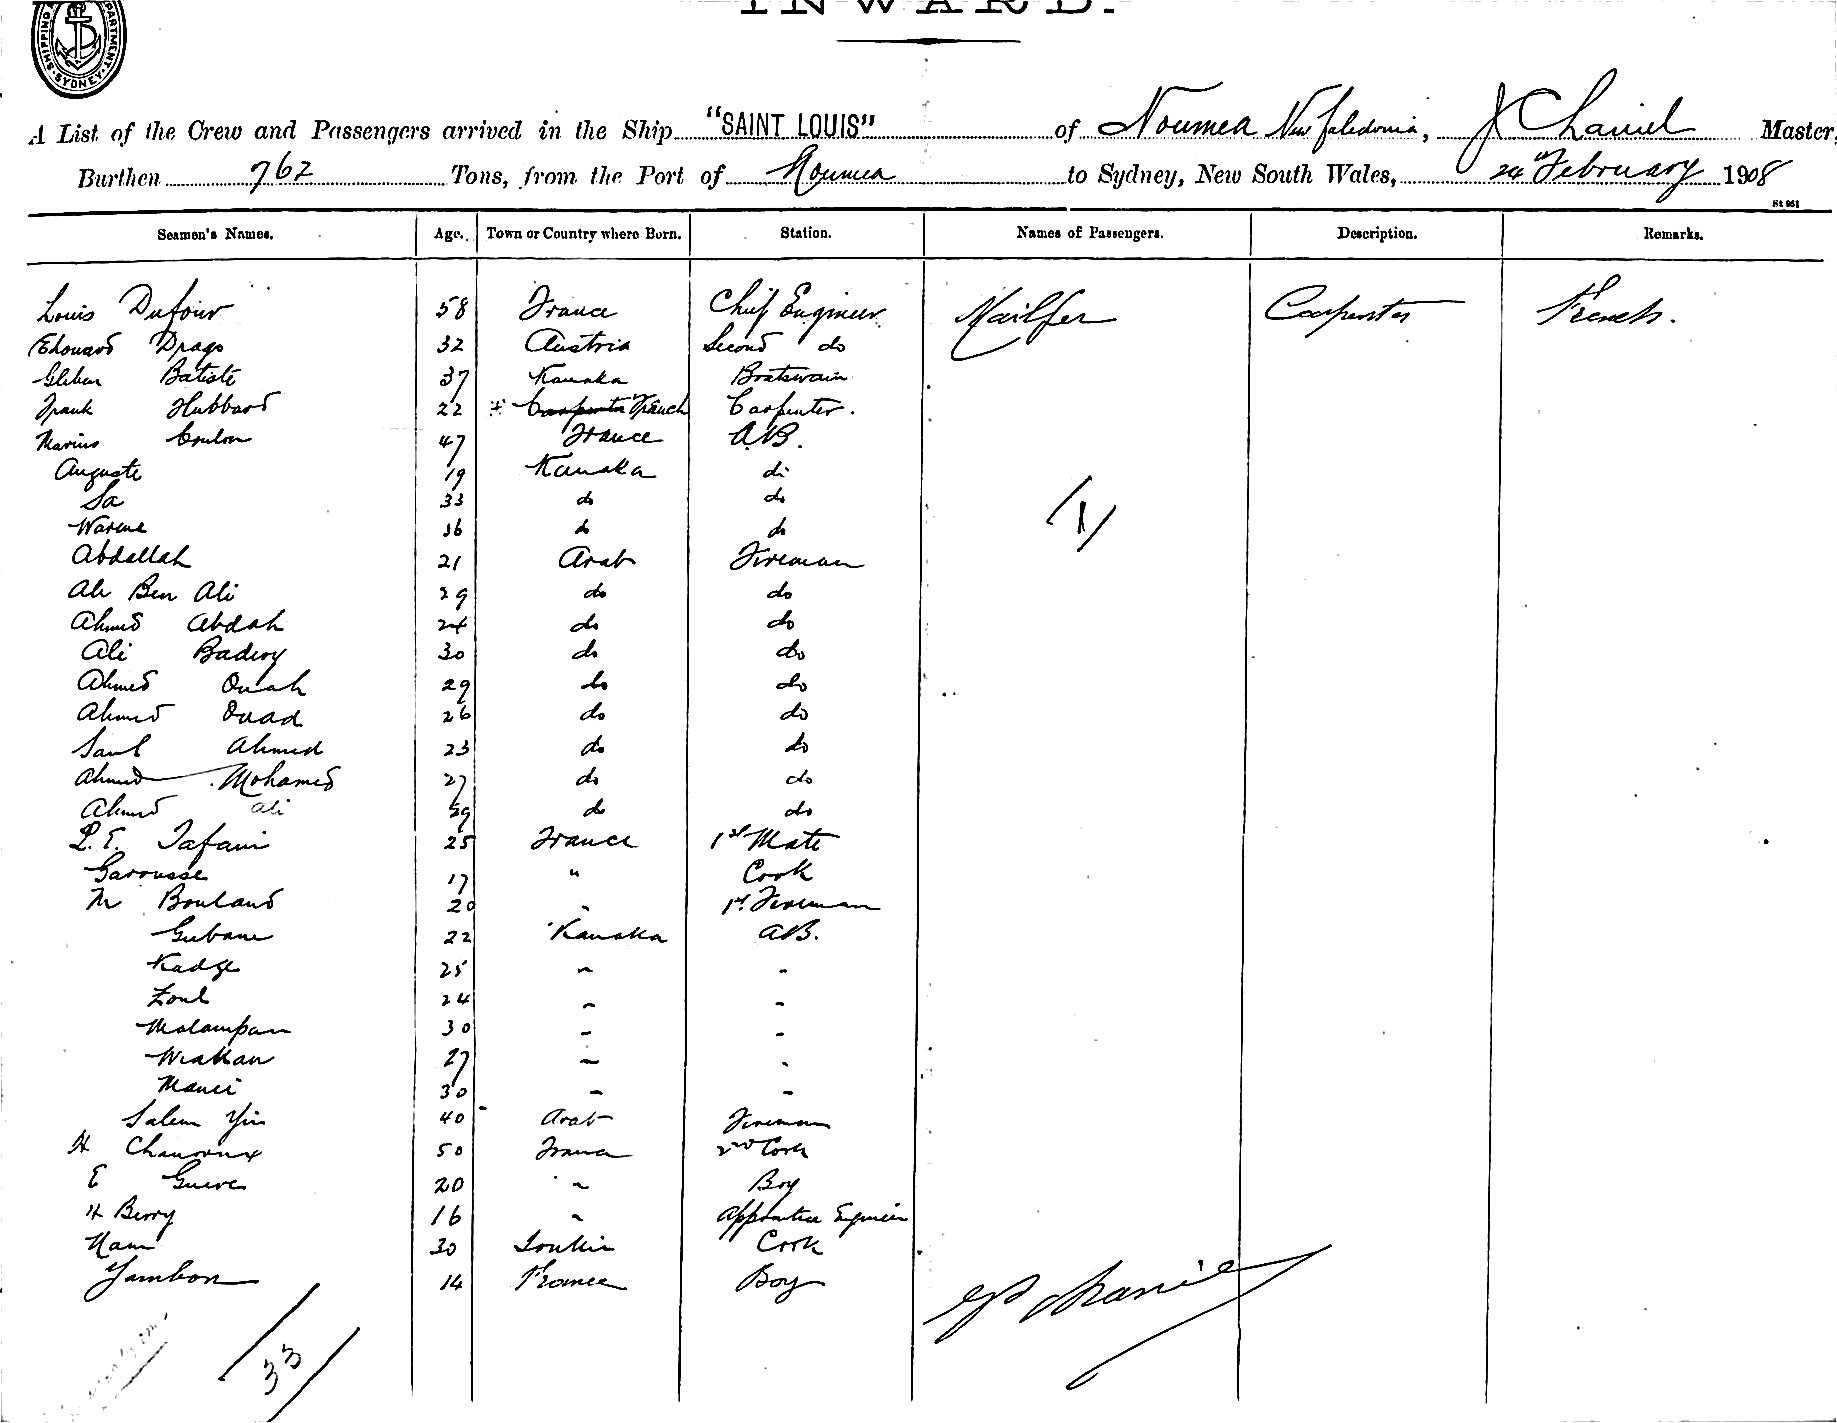 INWARD.
SHIPPING DEPARTMENT. SYDNEY
A List of the Crew and Passengers arrived in the Ship "SAINT LOUIS" of Noumea New Caledonia, J Chaniel Master,
Burthen 762 Tons, from the Port of Noumea to Sydney, New South Wales, 24th February 1908
St 951
Seamen's Names. Age. Town or Country where Born. Station. Names of Passengers. Description. Remarks.
Louis Dufour 58 France Chief Engineer Mailfer Carpenter French.
Edouard Drago 32 Austria Second do
Batiste 37 Kanaka Boatswain
Frank Hubbard 22 * Carpenter French Carpenter.
Marius Coulon 47 France AB.
Auguste 19 Kanaka do
Sa 33 do do
Warene 36 do do
(1)
Abdallah 21 Arab Fireman
Ali Ben Ali 29 do do
Ahmed Abdah 24 do do
Ali Badery 30 do do
Ahmed Ouah 29 do do
Ahmed Ouad 26 do do
Said Ahmed 23 do do
Ahmed Mohamed 27 do do
Ahmed Ali 29 do do
P. E. Tafani 25 France 1st Mate
Garousse 17 " Cook
M Bouland 20 " 1st Fireman
Gubane 22 Kanaka AB.
Kadge 25 " "
Zoul 24 " "
Malampan 30 " "
Wiakan 27 " "
Manei 30 " "
Salem Yin 40 Arab Fireman
H Chauroux 50 France 2nd Cook
E Guerre 20 " Boy
H Berry 16 " Apprentice Engineer
Nam 30 Tonkin Cook
Jambon 14 France Boy
Chaniel
/33/